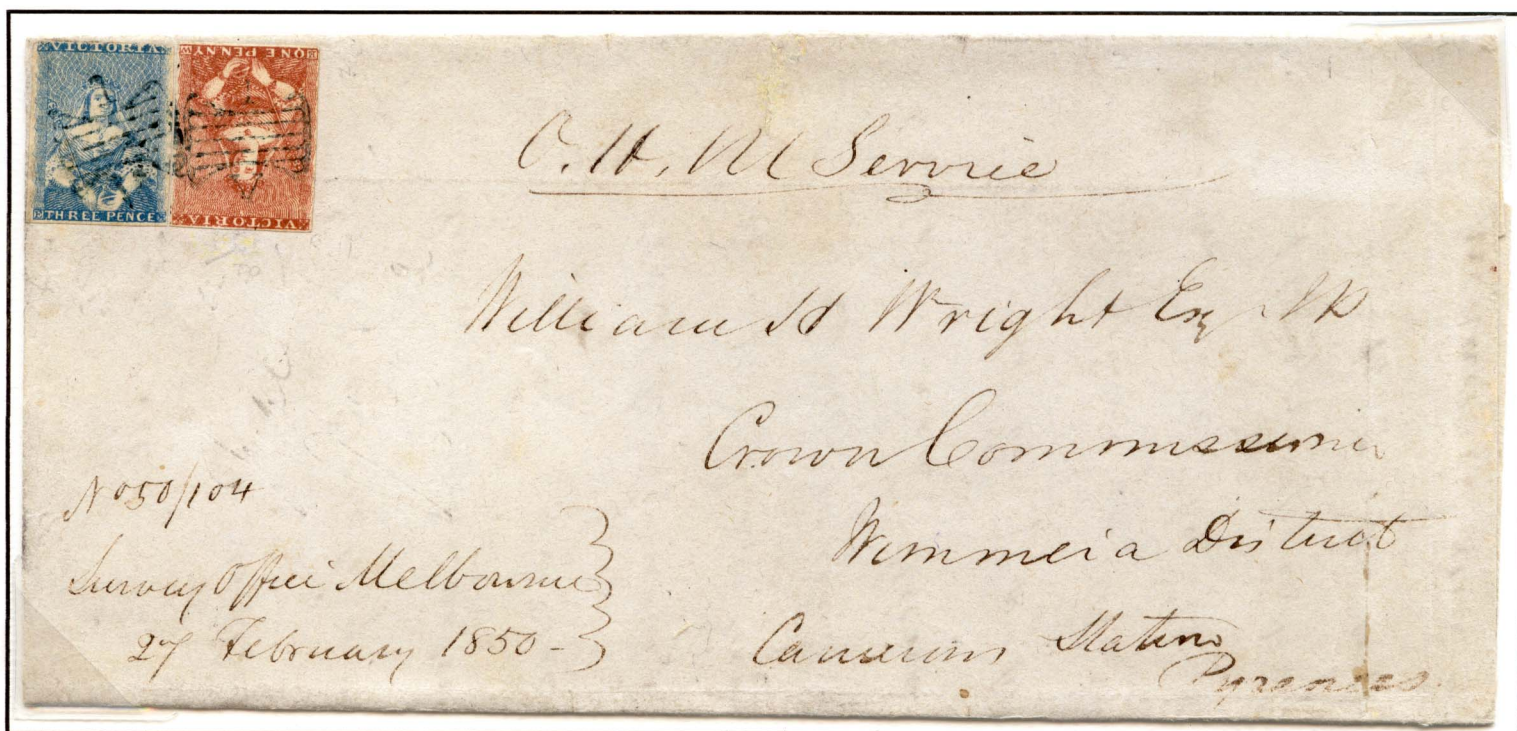 VICTORIA
THREE PENCE
ONE PENNY
VICTORIA
O. H. M Service
William H Wright Esq JP
Crown Commissioner
Wimmera District
Camerons Station
Pyrenees
No 50/104
Survey Office Melbourne
27 February 1850